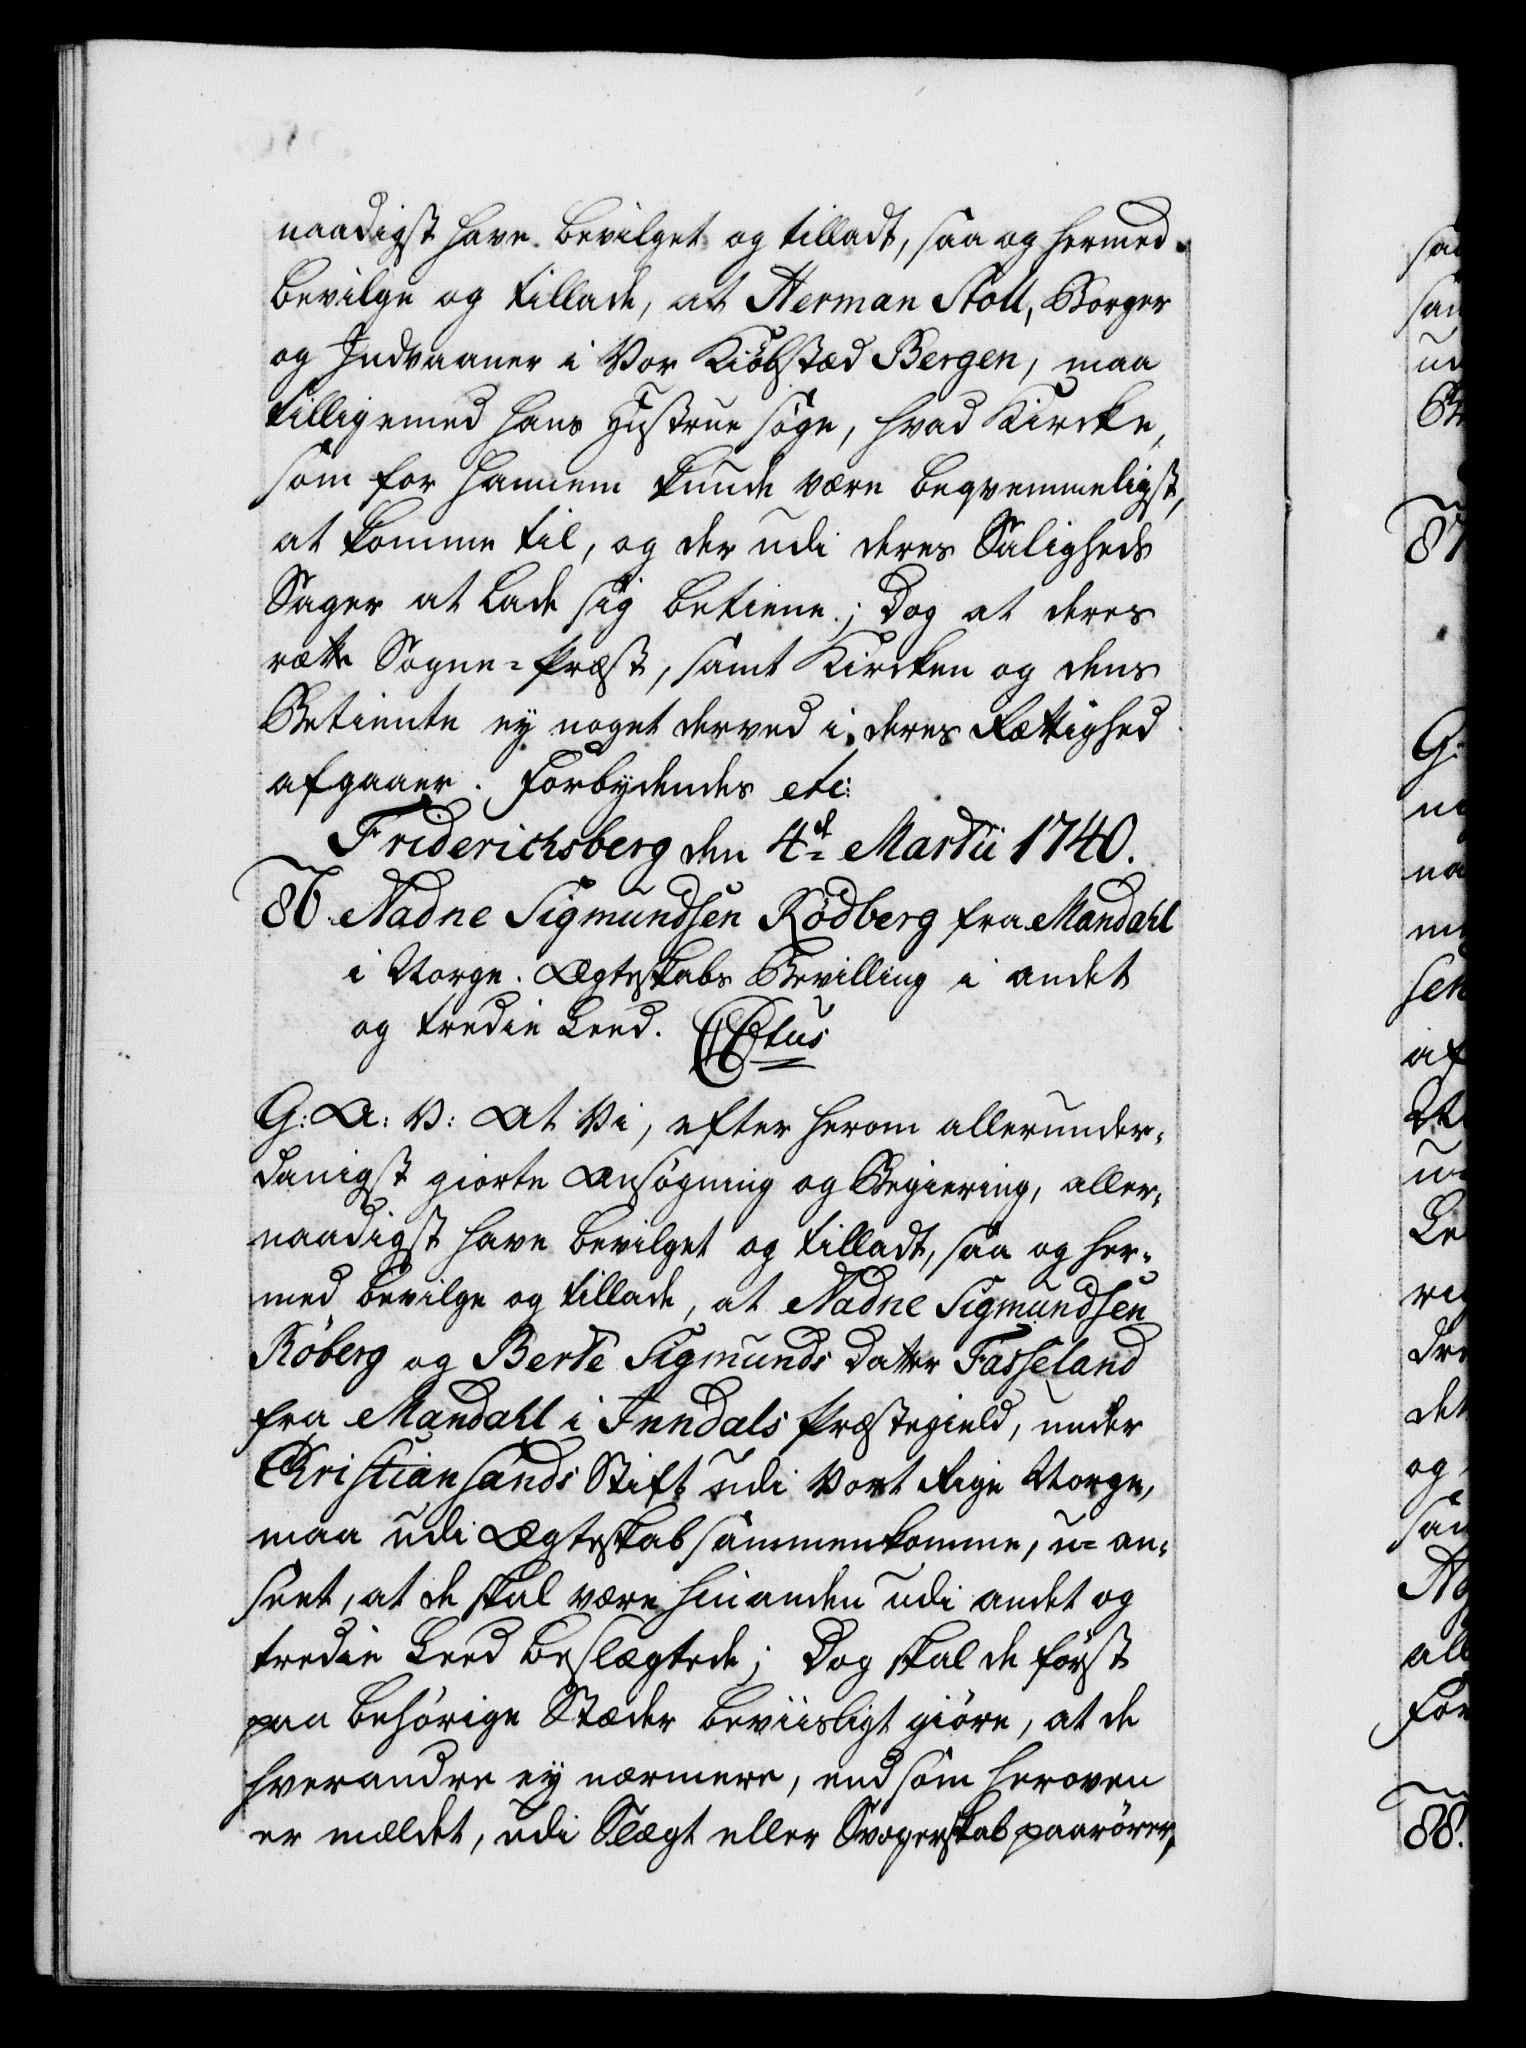 naadigst have bevilget og tilladt, saa og hermed
bevilge og tillade, at Herman Stoll, Borger
og Indvaaner i Vor Kiöbstæd Bergen, maa
tilligemed hans Hustrue söge, hvad Kircke,
som for hannem kunde være beqvemmeligst,
at komme til, og der udi deres Saligheds
Sager at lade sig betiene; Dog at deres
rætte Sogne-Præst, samt Kircken og dens
Betiente ey noget derved i deres Rættighed
afgaaer. Forbydendes etc:
Friderichsberg den 4de Martii 1740.
86. Nadne Sigmundsen Rödberg fra Mandahl
i Norge. Ægteskabs Bevilling i andet
og tredie Leed.
G: A: V: At Vi, efter herom allerunder-
danigst giorte Ansögning og Begiering, aller-
naadigst have bevilget og tilladt, saa og her-
med bevilge og tillade, at Nadne Sigmundsen
Röberg og Berte Sigmunds Datter Fasseland
fra Mandahl i Inndals Præstegield, under
Christiansands Stift udi Vort Rige Norge,
maa udi Ægteskab sammenkomme, u-an-
seet, at de skal være hinanden udi andet og
tredie Leed beslægtede; Dog skal de först
paa behörige Stæder beviisligt giöre, at de
hverandre ey nærmere, end som heroven
er meldet, udi Slægt eller Svogerskab paarörer,
87
G:
sen
det
og
88.